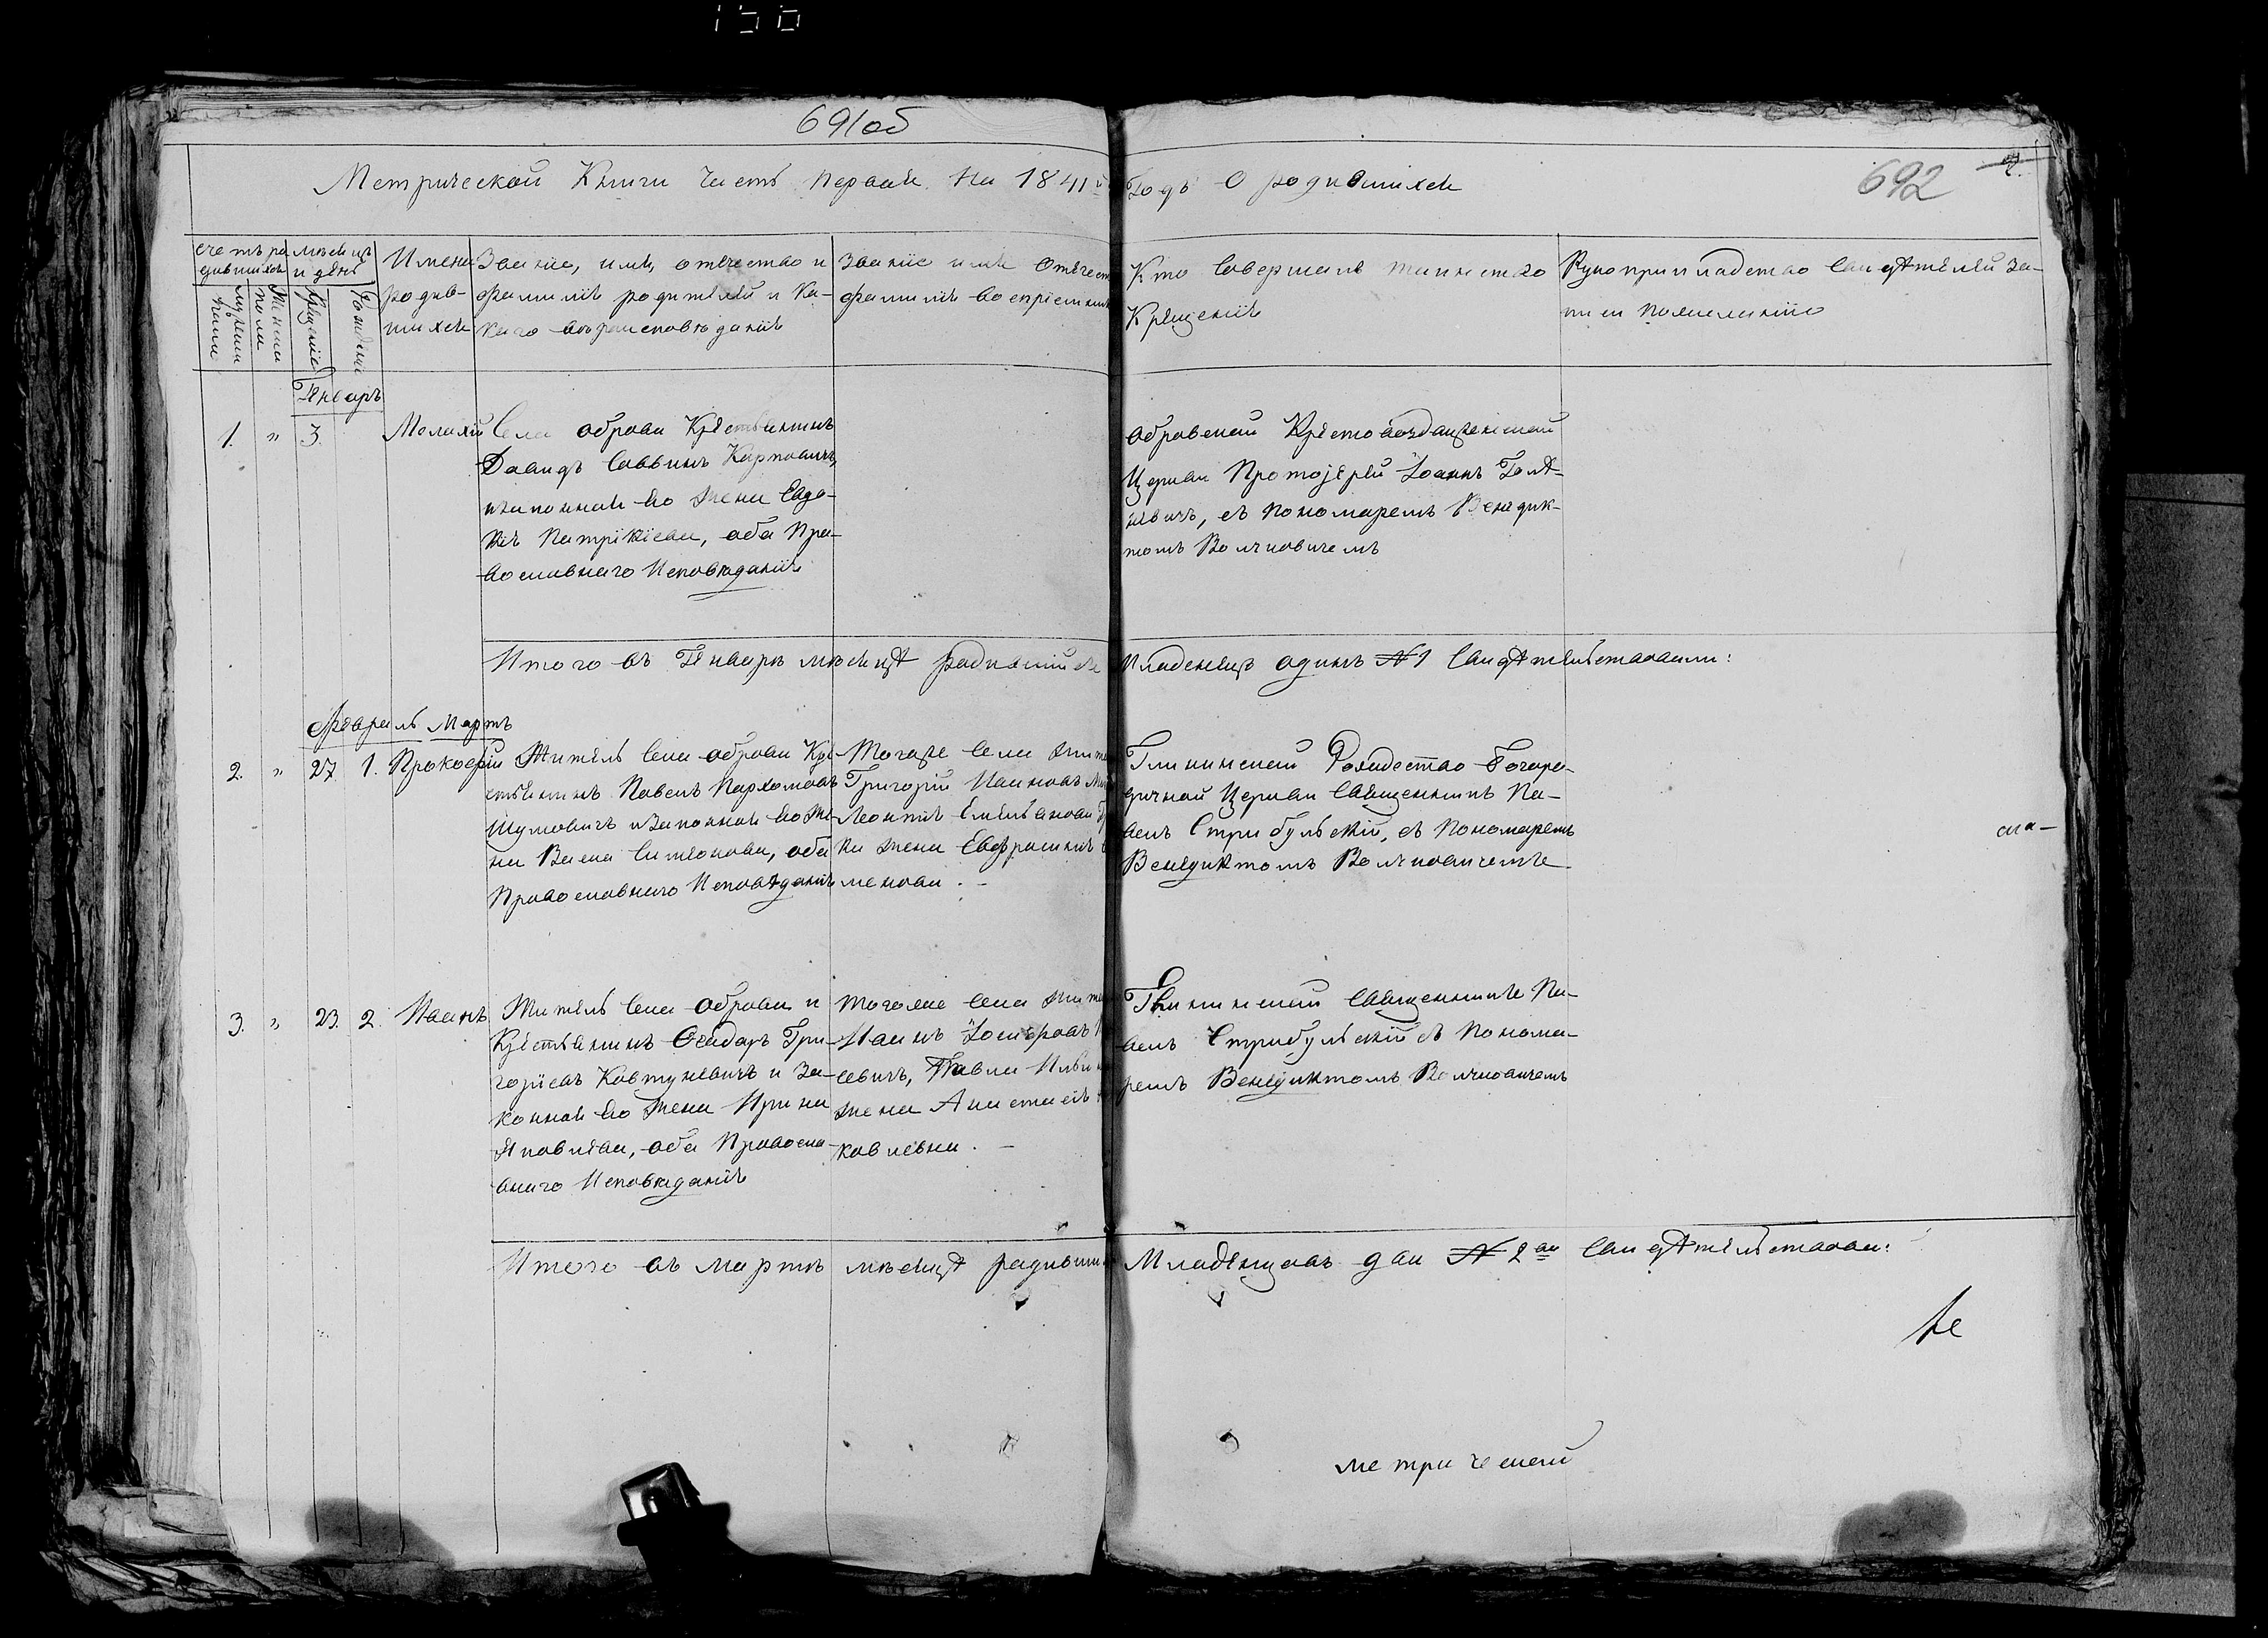 691об
Метрической Книги Часть Первая На 1841й Годъ О родившихся
692
счетъ ра мѣсяцъ
дившихся и день
мужеска
пола
женска
крещенiе
Рожденiе
Имена
родив-
шихся
Званiе, имя, отчество и
фамилiя родителей и Ка-
каго вѣроисповѣданiя
Званiе имя Отчест
фамилiя воспрiемник
Кто Совершалъ таинство
Крещенiя
Рукоприкладство Свидѣтелей за-
писи по желанiю
Генваръ
1. " 3.
Малахiй
Села оброва Крестьянинъ
Давидъ Саввинъ Карповичъ,
и законная Его жена Евдо-
кiя Патрикiева, оба Пра-
вославнаго Исповѣданiя
обровской Крестовоздвиженской
Церкви Протоiерей Iоаннъ
съ Пономаремъ Венедик-
томъ Волчковичемъ
Итого въ Генварѣ мѣсяцѣ родившiйся Младенецъ одинъ №1 Свидѣтельствовали:
Февраль Мартъ
2. " 27. 1. Прокофiй
Житель Села оброва Кре-
стьянинъ Павелъ Пархомовъ
Шумовичъ и Законная Его же-
на Васса Симеонова, оба
Православнаго Исповѣданiя
Тогоже Села жите
Григорiй Ивановъ
Леонтiя Емельянова
ка жена Евфросинiя
менова. -
Рождество Богоро-
дичной Церкви Священникъ Па-
велъ Стрибульскiй, съ Пономаремъ
Венедиктомъ Волчковичемъ
3. " 23. 2. Иванъ
Житель Села Оброва и
Крестьянинъ Феодоръ Гри-
горiевъ Ковтуневичъ и за-
конная Его жена Ирина
Яковлева, оба Правосла-
внаго Исповѣданiя
тогоже Села жите
Иванъ Iосифовъ
севичъ, Павла Ильи
жена Анастасiя
ковлевна. -
Священникъ Па-
велъ Стрибульскiй съ Понома-
ремъ Венедиктомъ Волчковичемъ
Итого въ мартѣ мѣсяцѣ родивши Младенцовъ два №2ва Свидѣтельствовали:
метрической